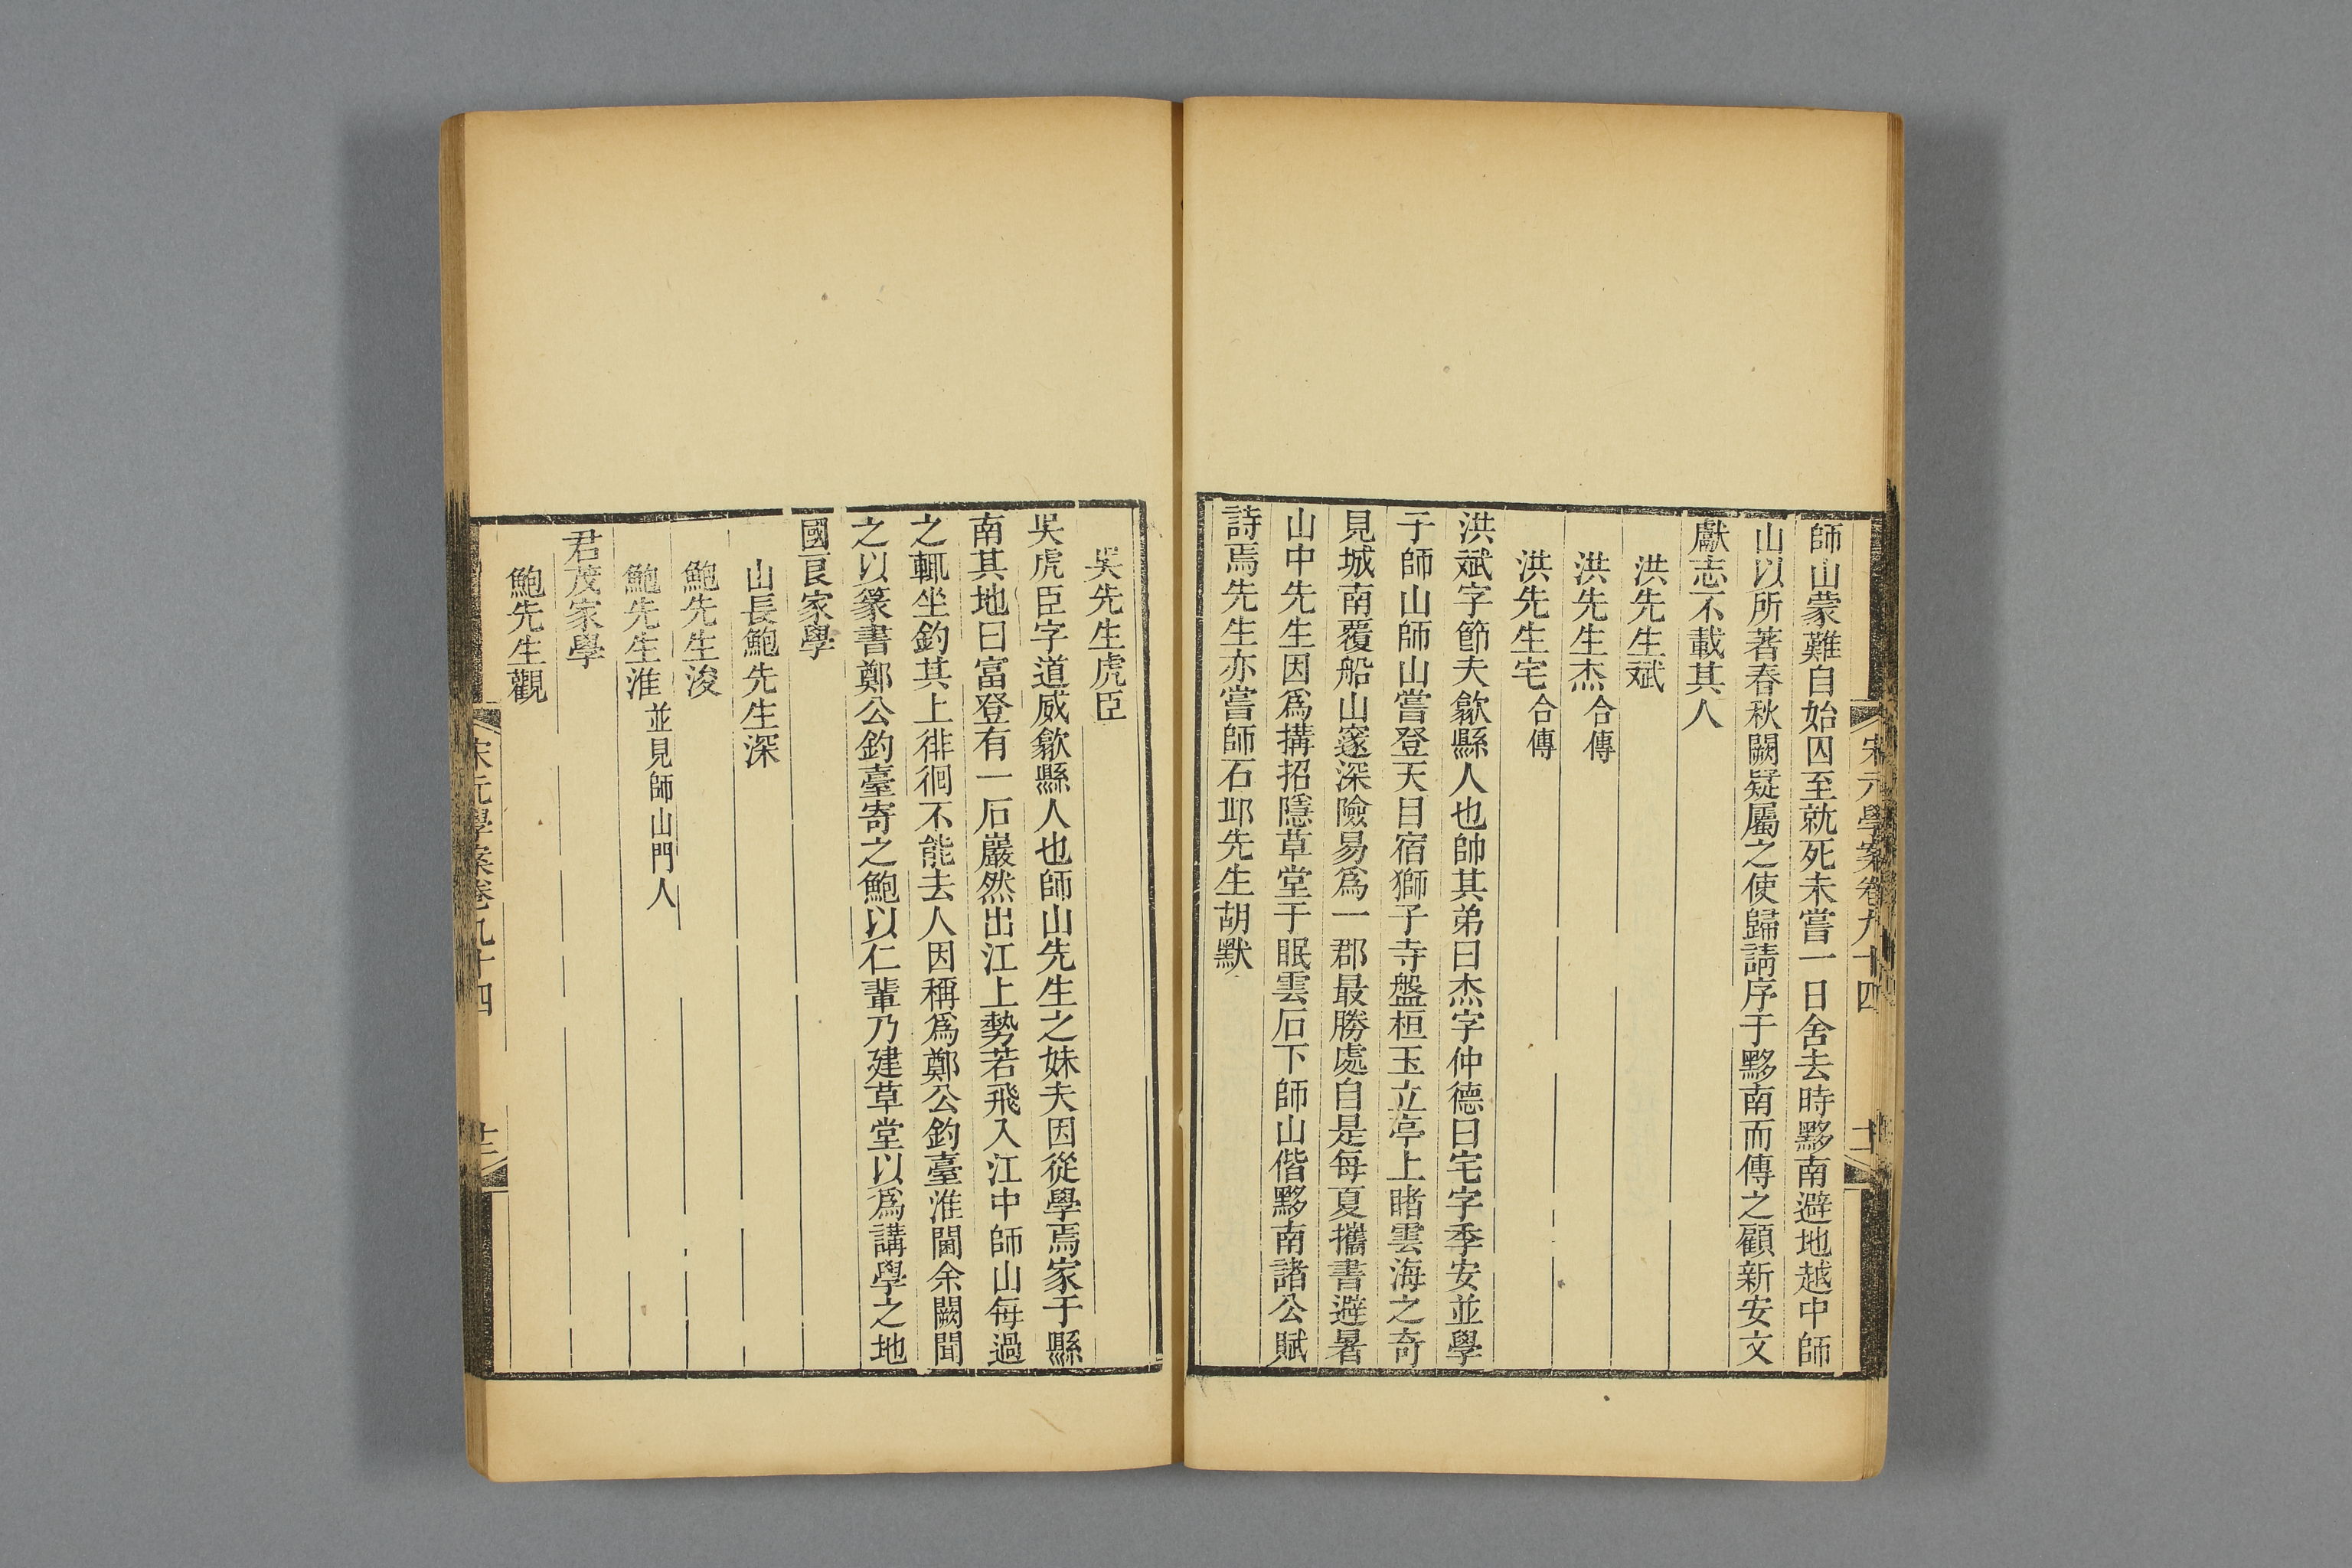 宋元學案卷九十四
師山蒙難自始囚至就死未嘗一日舍去時黟南避地越中師
山以所著春秋闕疑屬之使歸請序于黟南而傳之顧新安文
獻志不載其人
洪先生斌
洪先生杰合傳
洪先生宅合傳
洪斌字節夫歙縣人也帥其弟曰杰字仲德曰宅字季安並學
于師山師山嘗登天目宿獅子寺盤桓玉立亭上睹雲海之奇
見城南覆船山邃深險易爲一郡最勝處自是每夏攜書避暑
山中先生因爲搆招隱草堂于眠雲石下師山偕黟南諸公賦
詩焉先生亦嘗師石邱先生胡默
吳先生虎臣
吳虎臣字道威歙縣人也師山先生之妹夫因從學焉家于縣
南其地曰富登有一石巖然出江上勢若飛入江中師山每過
之輒坐釣其上徘徊不能去人因稱爲鄭公釣臺淮閫余闕聞
之以篆書鄭公釣臺寄之鮑以仁輩乃建草堂以爲講學之地
國良家學
山長鮑先生深
鮑先生浚
鮑先生淮並見師山門人
君茂家學
鮑先生觀
宋元學案卷九十四